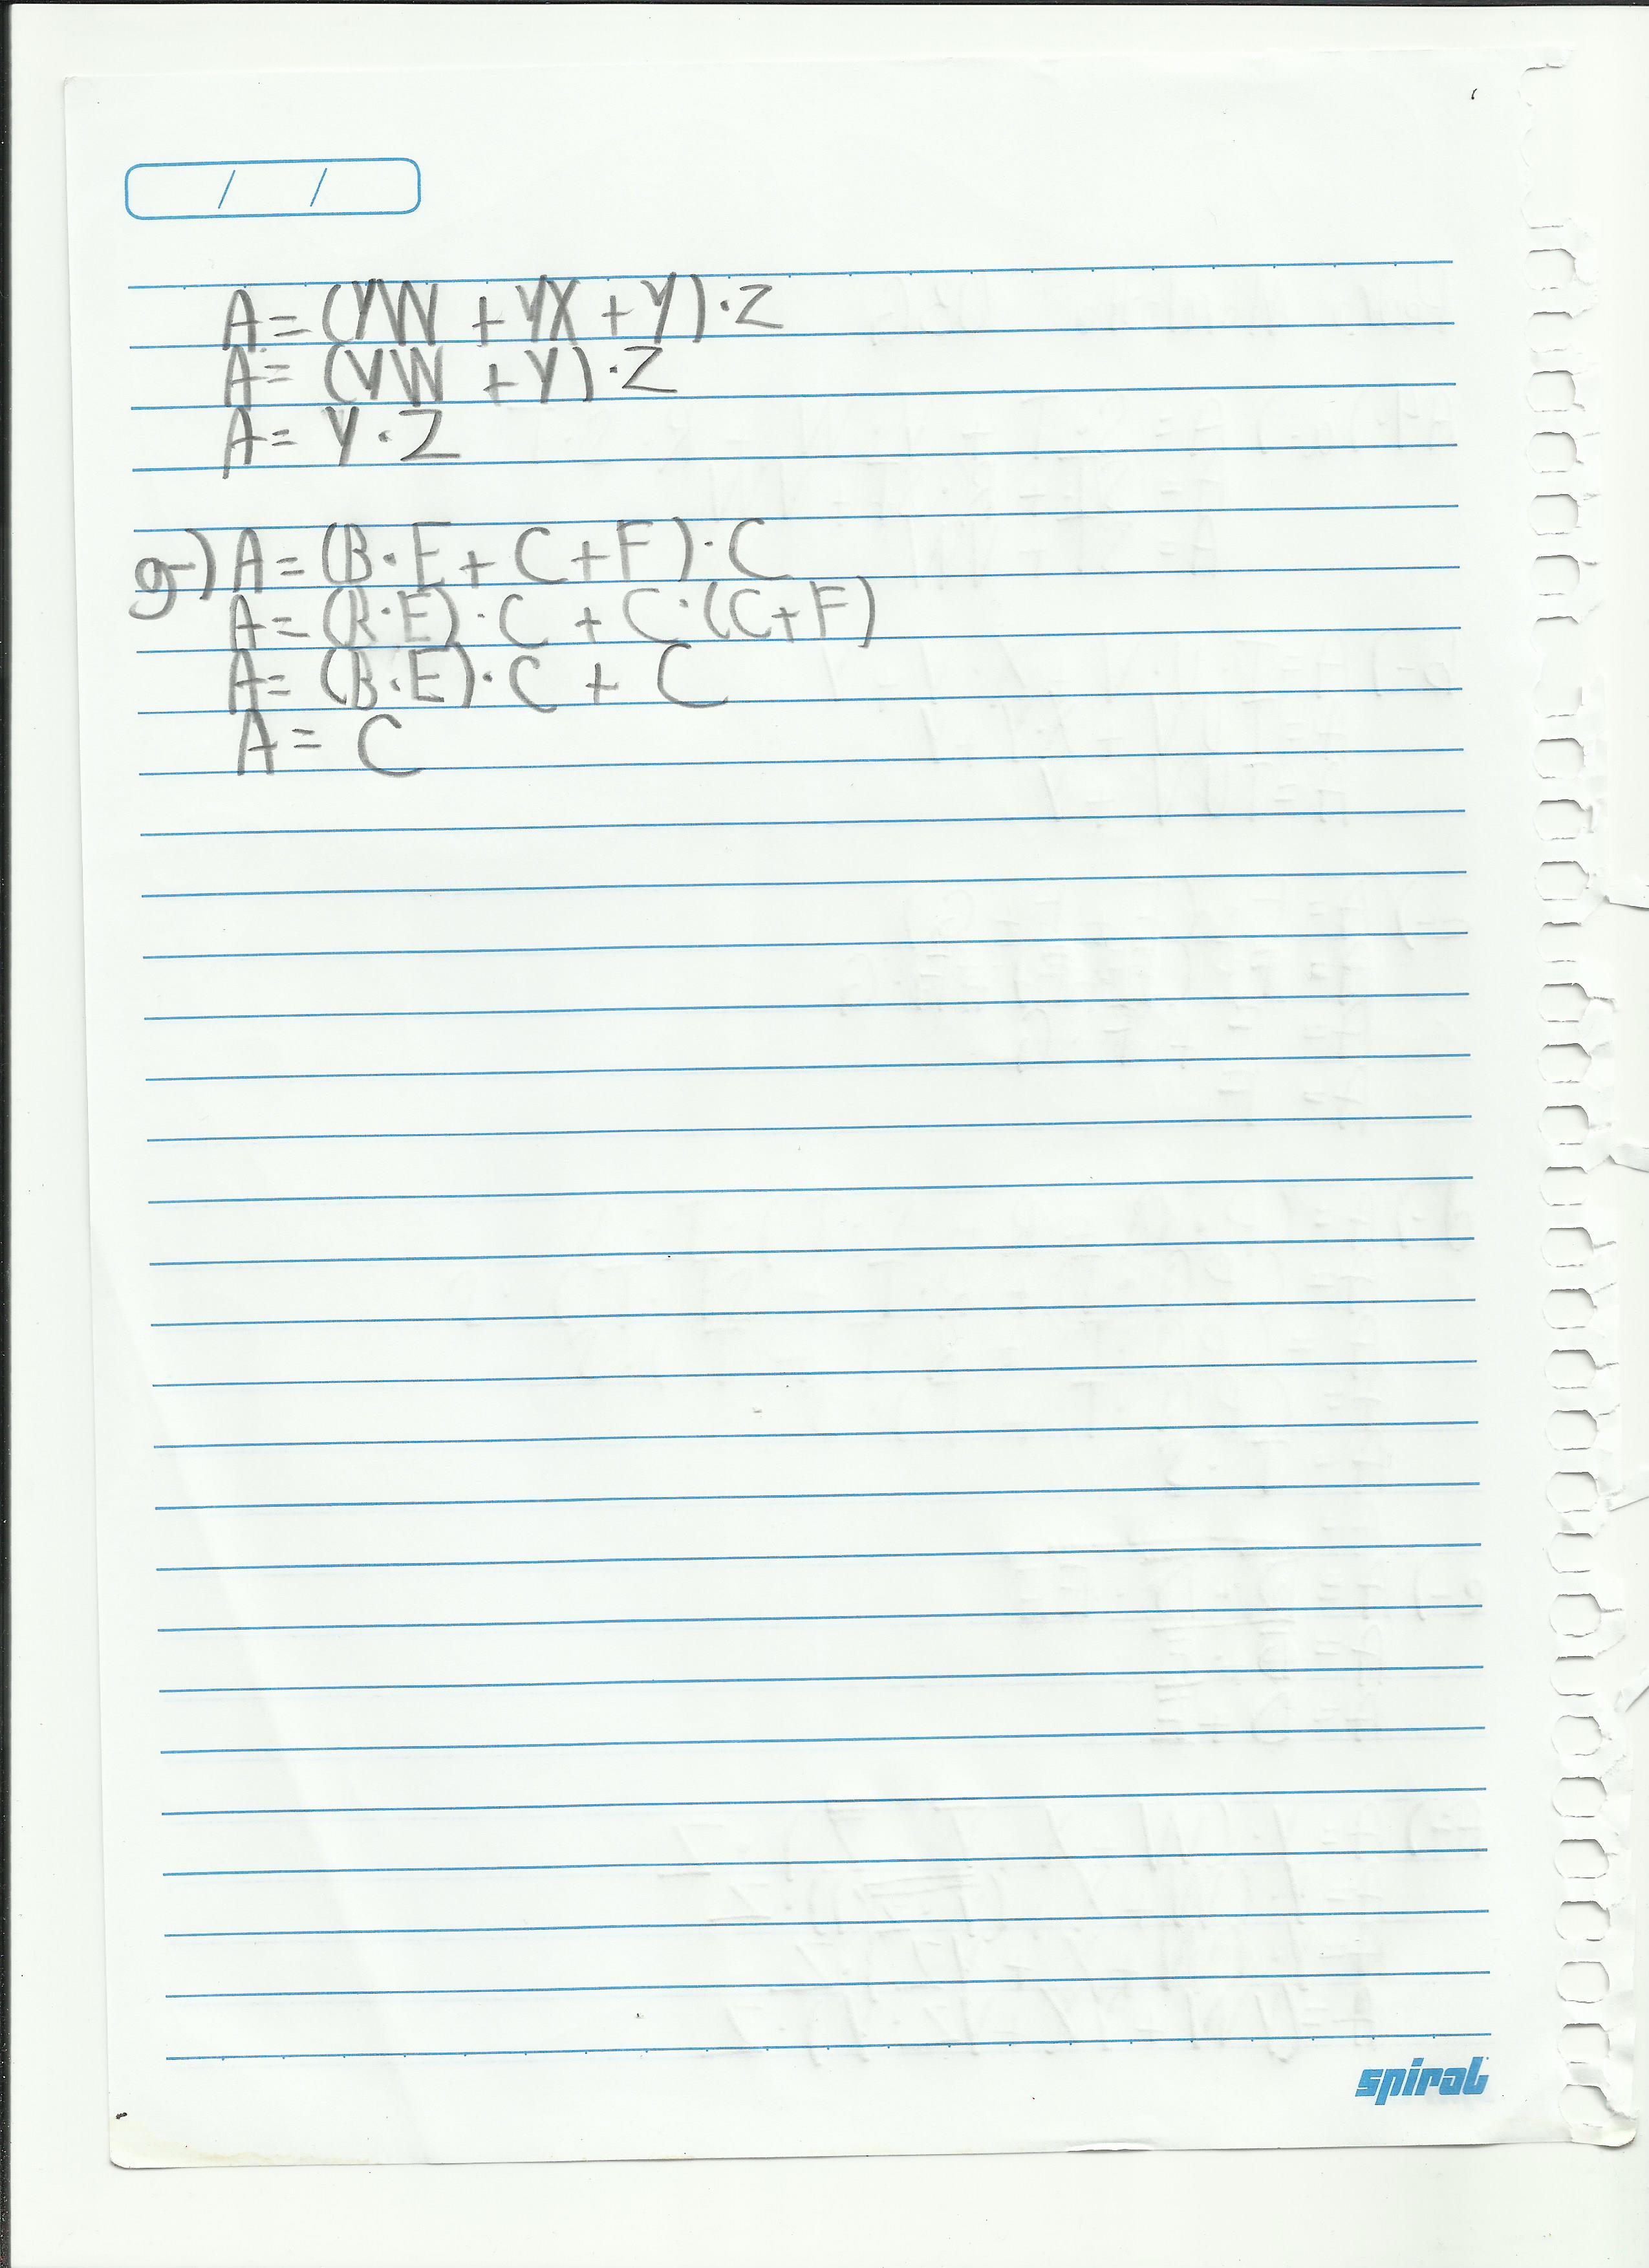 / /
A = (YW + YX + Y) · Z
A = (YW + Y) · Z
A = Y · Z
g-) A = (B · E + C + F) · C
A = (B · E) · C + C · (C + F)
A = (B · E) · C + C
A = C
spiral